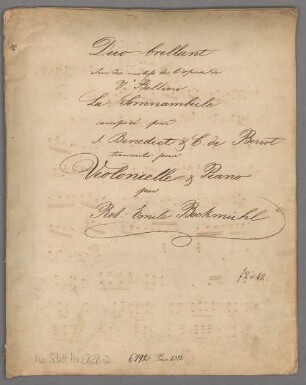 Duo brillant
sur des motifs de l'opera de
V. Bellini
La Somnambule
composé par
J. Benedict & C. de Beriot
transcrit pour
Violoncelle & Piano
par
Rob. Emile Bockmühl
6192